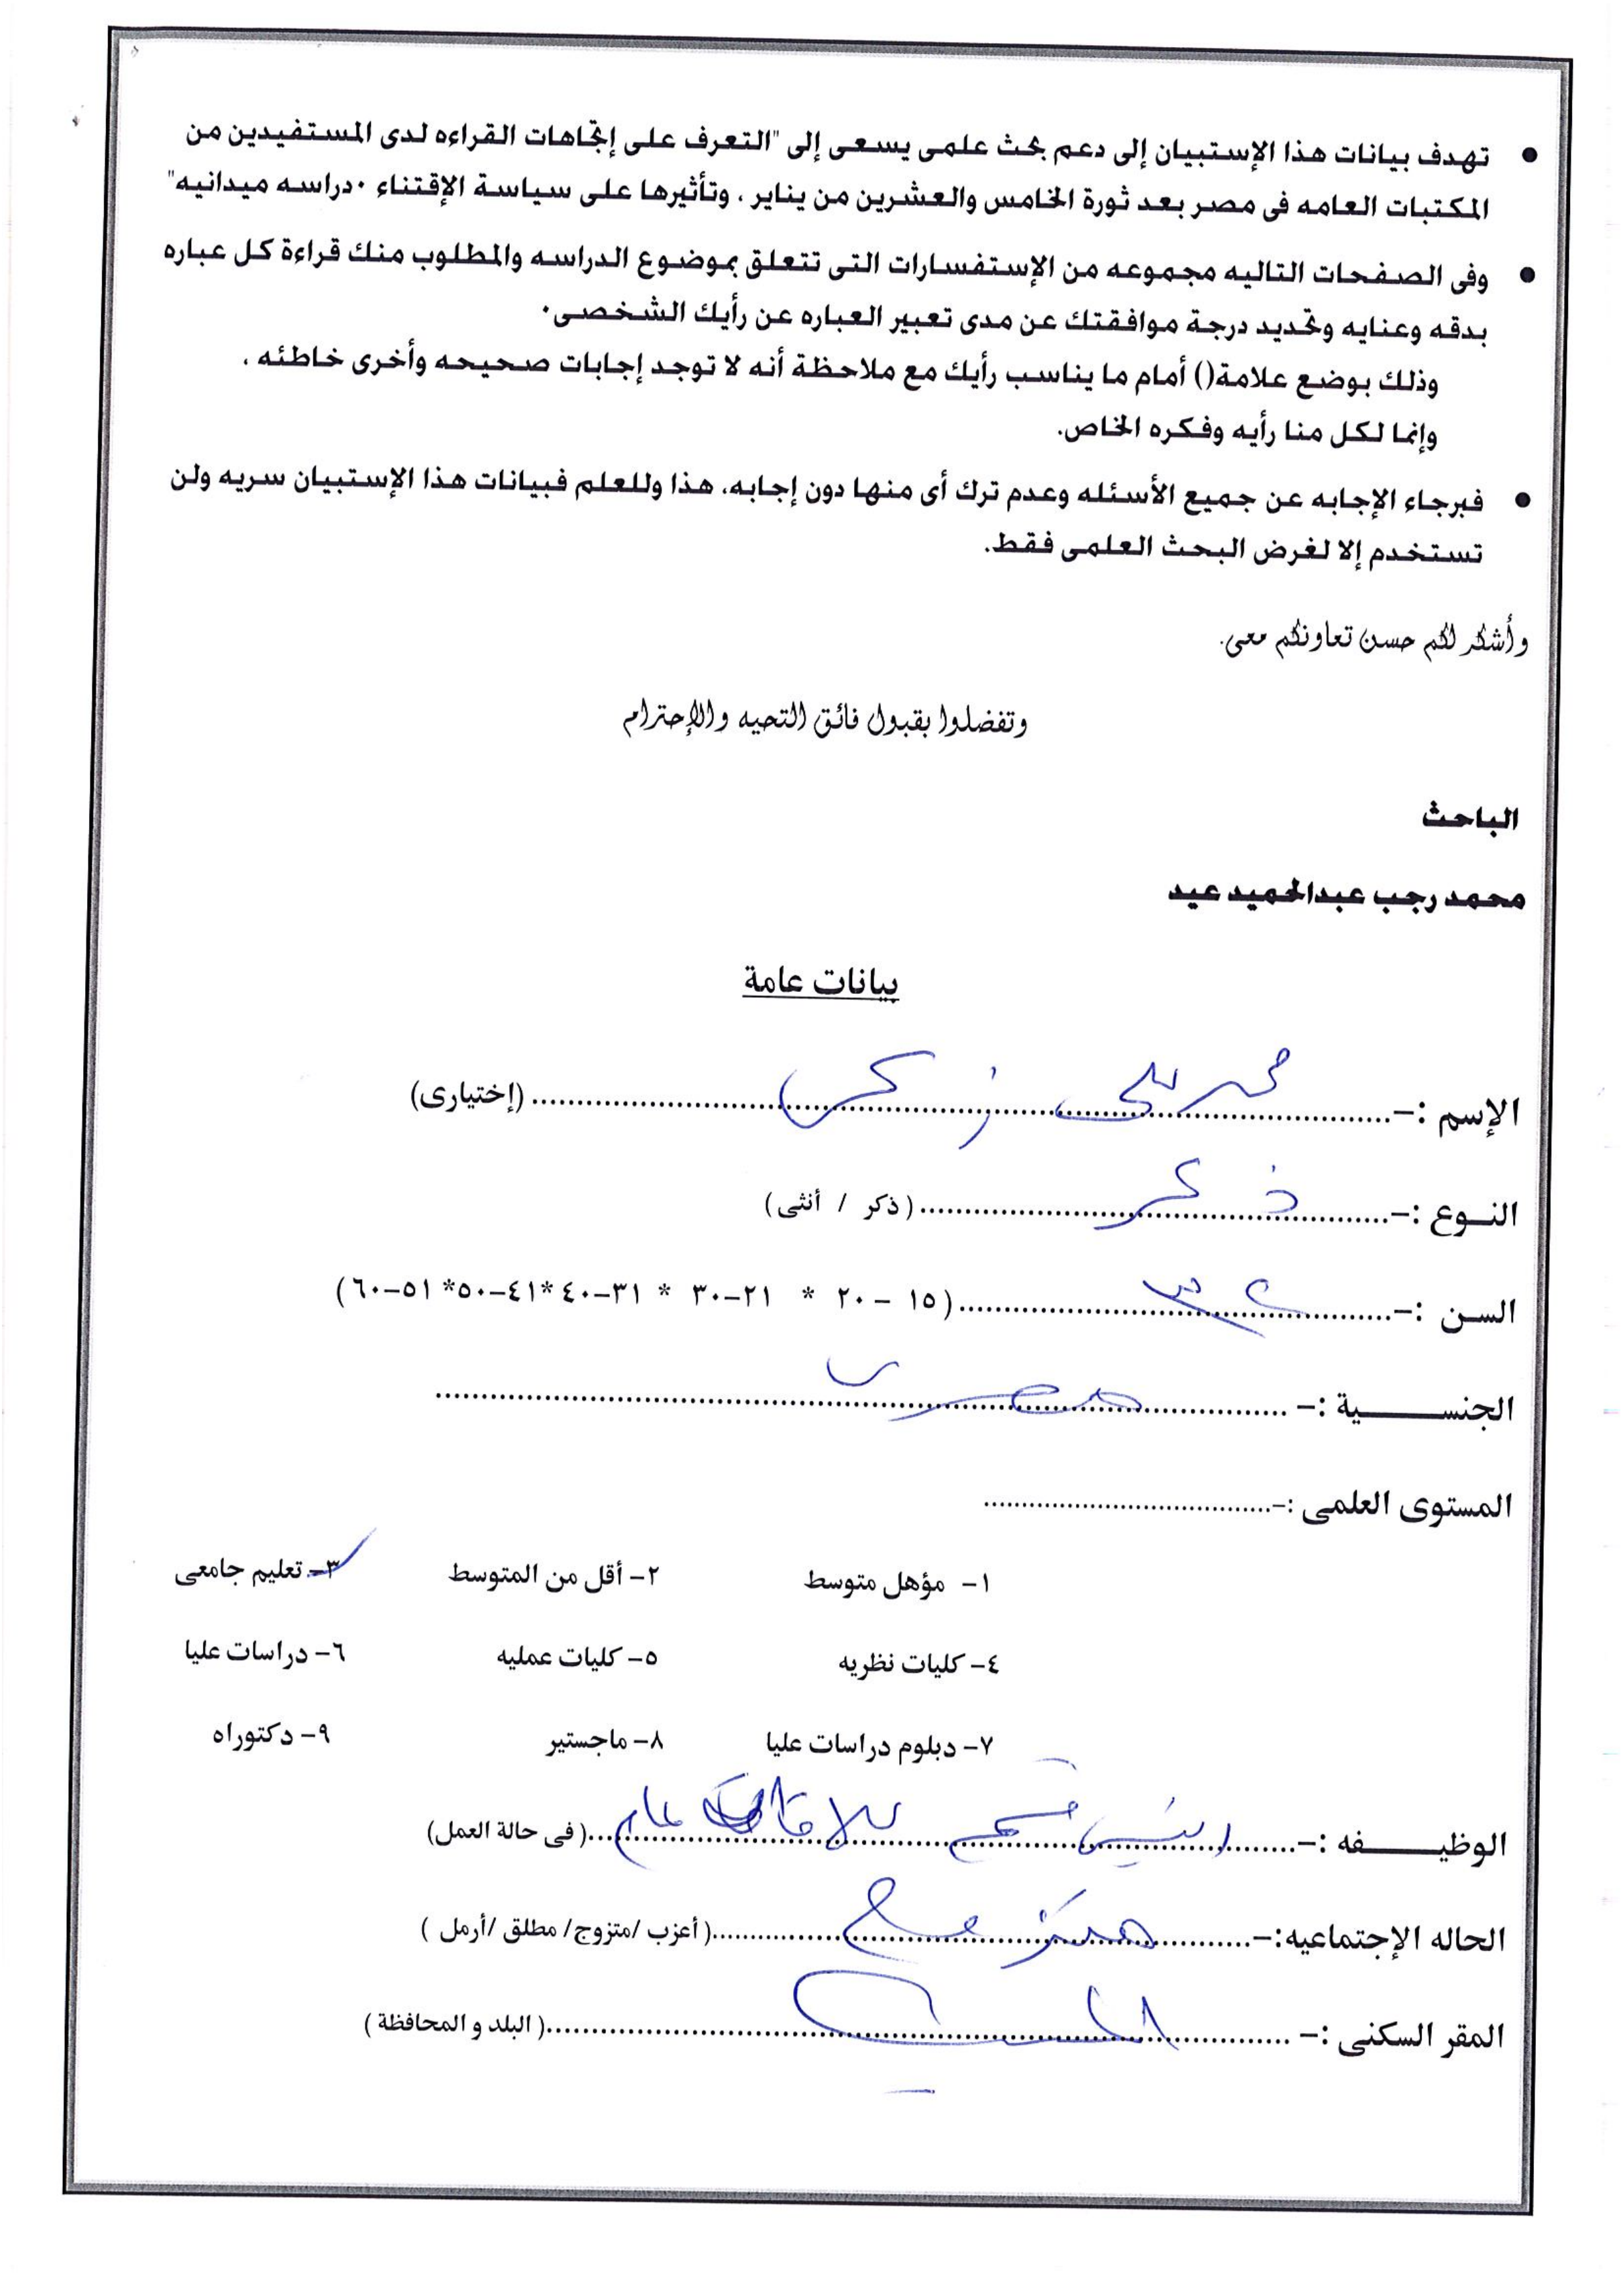 • تهدف بيانات هذا الإستبيان إلى دعم بحث علمى يسعى إلى "التعرف على إتجاهات القراءه لدى المستفيدين من
المكتبات العامه فى مصر بعد ثورة الخامس والعشرين من يناير ، وتأثيرها على سياسة الإقتناء ٠دراسه ميدانيه"
• وفى الصفحات التاليه مجموعه من الإستفسارات التى تتعلق بموضوع الدراسه والمطلوب منك قراءة كل عباره
بدقه وعنايه وتحديد درجة موافقتك عن مدى تعبير العباره عن رأيك الشخصى٠
وذلك بوضع علامة() أمام ما يناسب رأيك مع ملاحظة أنه لا توجد إجابات صحيحه وأخرى خاطئه ،
وإنما لكل منا رأيه وفكره الخاص.
• فبرجاء الإجابه عن جميع الأسئله وعدم ترك أى منها دون إجابه، هذا وللعلم فبيانات هذا الإستبيان سريه ولن
تستخدم إلا لغرض البحث العلمى فقط.
وأشكر لكم حسن تعاونكم معى.
وتفضلوا بقبول فائق التحيه والإحترام
الباحث
محمد رجب عبدالحميد عيد
بيانات عامة
الإسم :-.......... (إختيارى)
النـوع :-..... ذكر .....( ذكر / أنثى )
السـن :-..........( ١٥ – ٢٠ * ٢١-٣٠ * ٣١-٤٠ *٤١-٥٠* ٥١-٦٠)
الجنســـــية :- ..... مصرى .....
المستوى العلمى :-..........
١- مؤهل متوسط ٢- أقل من المتوسط ٣- تعليم جامعى
٤- كليات نظريه ٥- كليات عمليه ٦- دراسات عليا
٧- دبلوم دراسات عليا ٨- ماجستير ٩- دكتوراه
الوظيـــــفه :-..........( فى حالة العمل)
الحاله الإجتماعيه:-..... متزوج .....( أعزب /متزوج/ مطلق /أرمل )
المقر السكنى :- ..........( البلد و المحافظة )